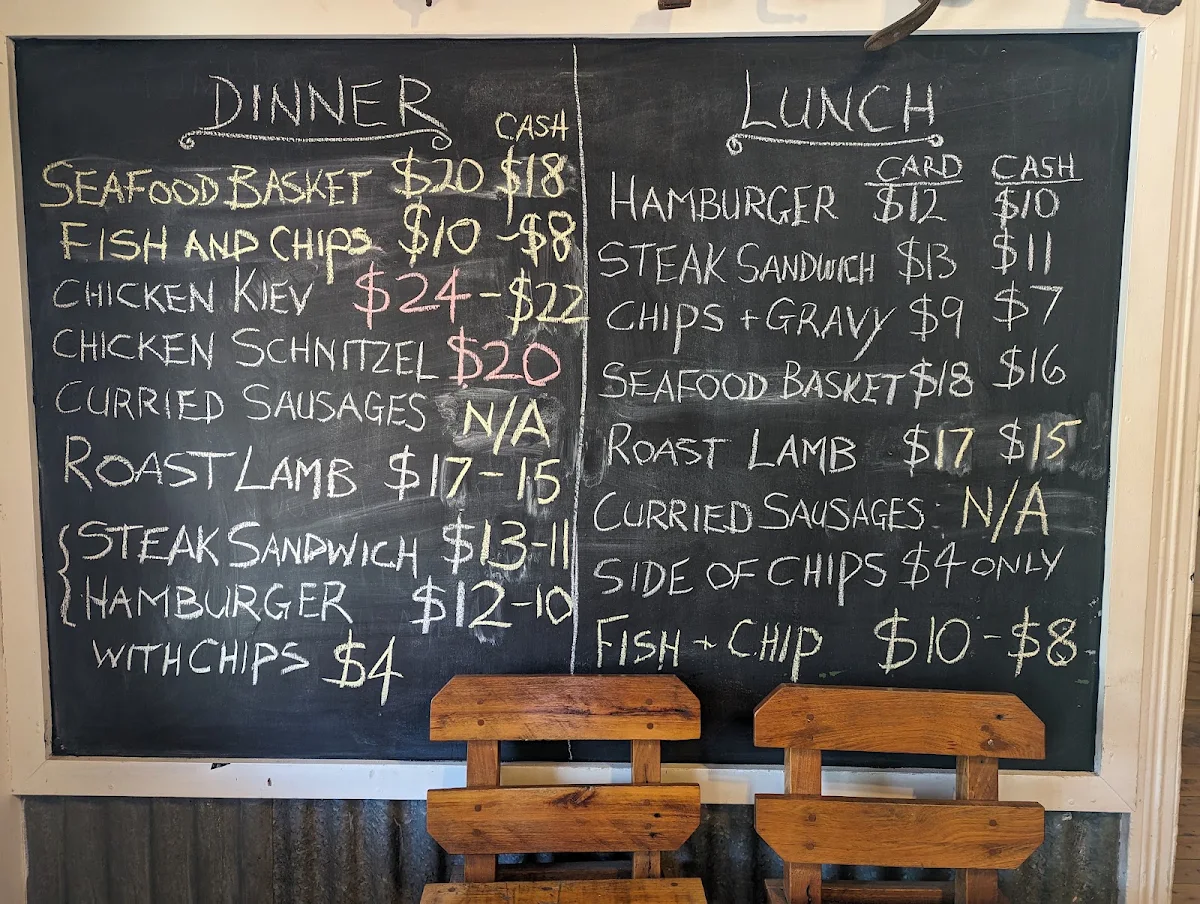 DINNER
CASH
SEAFOOD BASKET $20 $18
FISH AND CHIPS $10 -$8
CHICKEN KIEV $24-$22
CHICKEN SCHNITZEL $20
CURRIED SAUSAGES N/A
ROAST LAMB $17-15
STEAK SANDWICH $13-11
HAMBURGER $12-10
WITH CHIPS $4
LUNCH
CARD CASH
HAMBURGER $12 $10
STEAK SANDWICH $13 $11
CHIPS + GRAVY $9 $7
SEAFOOD BASKET $18 $16
ROAST LAMB $17 $15
CURRIED SAUSAGES N/A
SIDE OF CHIPS $4 ONLY
FISH + CHIP $10-$8